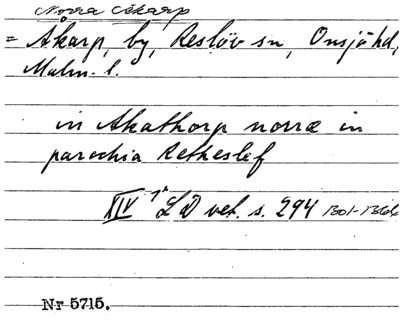 Norra Åkarp
= Åkarp, by, Reslöv sn, Onsjö hd,
Malm. l.
in Akathorp norræ in
parochia Retheslef
XIV LD vet. s. 294
Nr 5715.